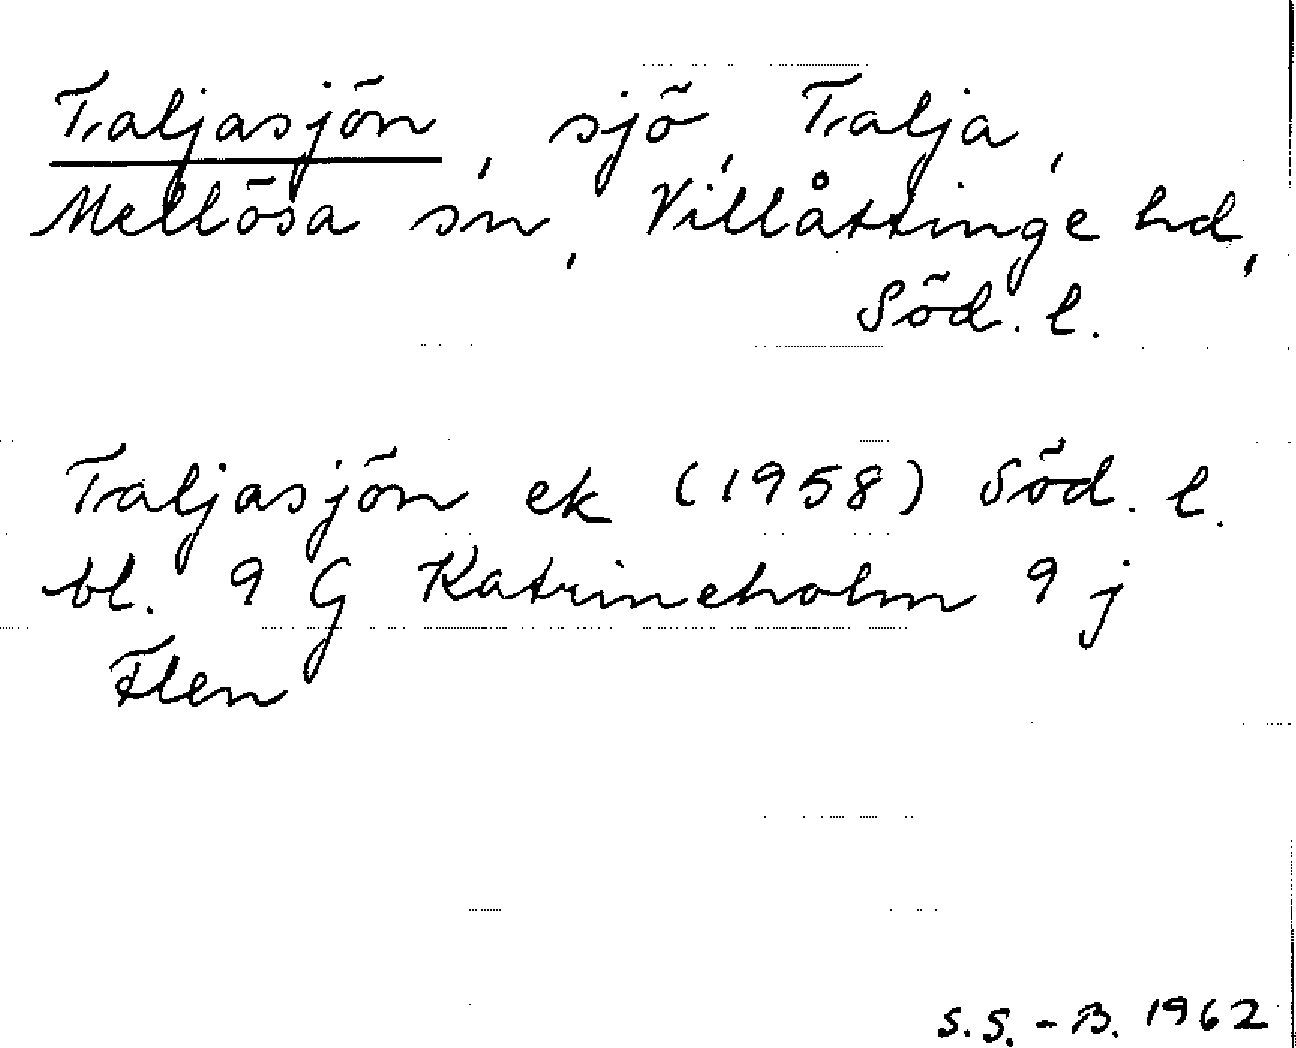 Taljasjön, sjö, Talja,
Mellösa sn, Villåttinge hd,
Söd. l.
Taljasjön ek (1958) Söd. l.
bl. 9 G Katrineholm 9 j
Flen
S.S.-B. 1962